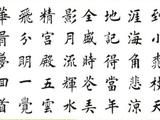 到小桃枝天
涯海角悲涼
地記得當年
全盛時花弄
影月流輝水
精宮殿五雲
飛分明一覺
華胥夢回首